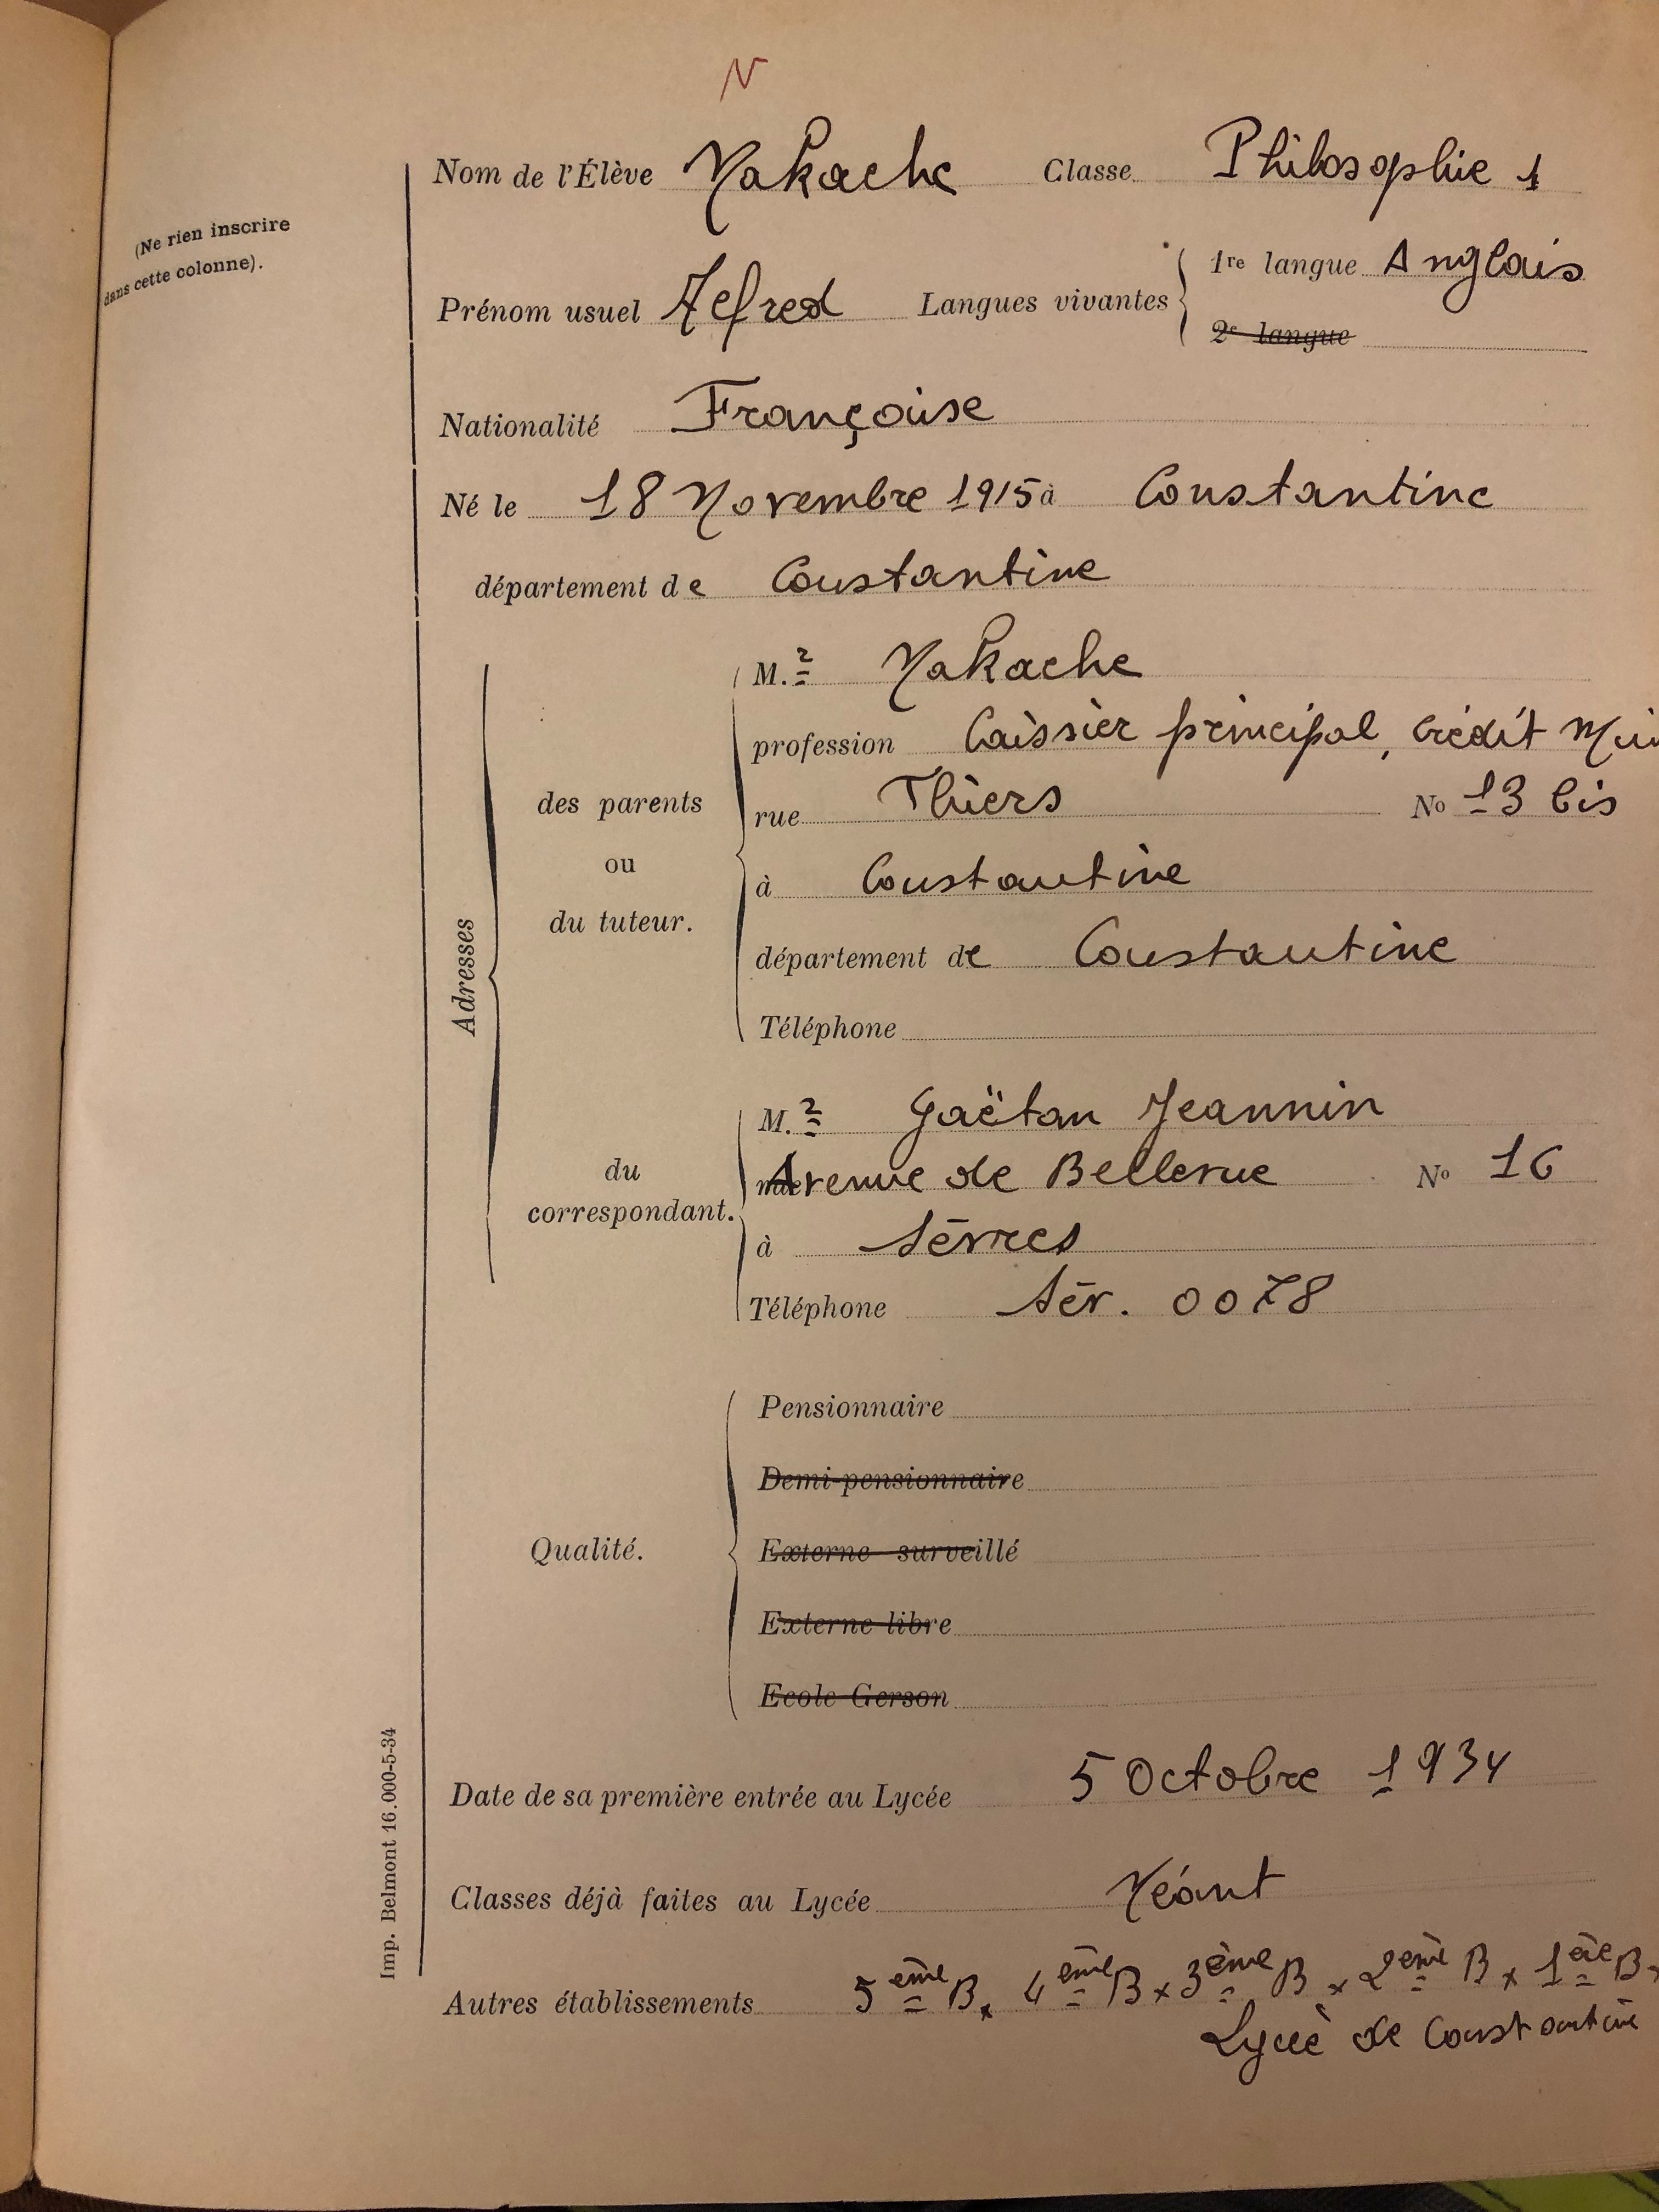 N
Nom de l'Élève Nakache Classe Philosophie 1
(Ne rien inscrire
dans cette colonne).
1re langue Anglais
Prénom usuel Alfred Langues vivantes
2e langue
Nationalité Française
Né le 18 Novembre 1915 à Constantine
département de Constantine
M.r Nakache
profession Caissier principal, Crédit
des parents
rue Thiers No 13 bis
ou
à Constantine
du tuteur.
département de Constantine
Adresses
Téléphone
M.r Gaëtan Jeannin
du
Avenue de Bellevue No 16
correspondant.
à Sèvres
Téléphone Sèv. 0078
Pensionnaire
Demi-pensionnaire
Qualité.
Externe surveillé
Externe libre
Ecole Gerson
Date de sa première entrée au Lycée 5 Octobre 1934
Classes déjà faites au Lycée Néant
Autres établissements 5ème B x 4ème B x 3ème B x 2ème B x 1ère B
Lycée de Constantine
Imp. Belmont 16.000-5-34